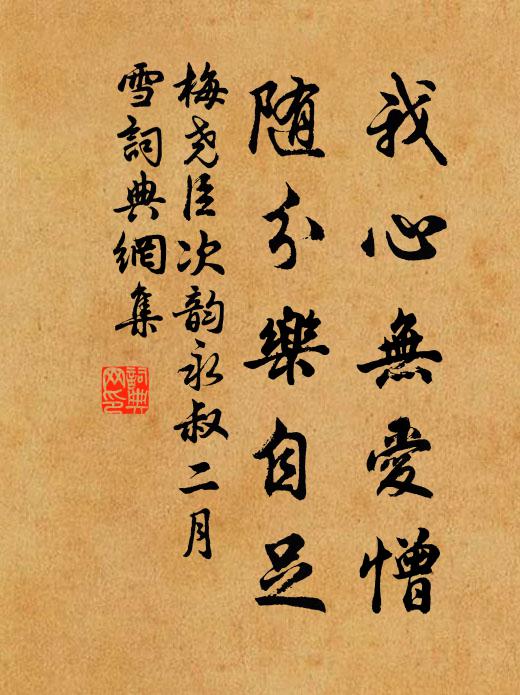 我心無愛憎
随分樂自足
梅尧臣次韵永叔二月
雪詞典網集
詞典网印